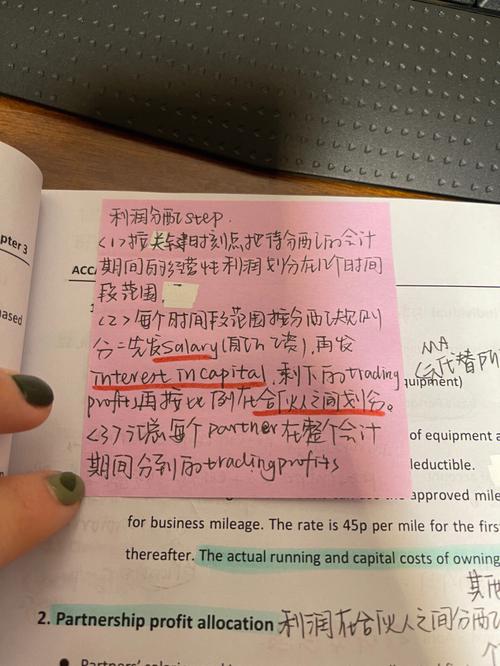 pter 3
ased
ACCA
利润分配step.
<1>按关键时刻点,把待分配的会计
期间的经营性利润划分在几个时间
段范围
<2>每个时间段范围按分配规则
分:先发salary(前几工资),再发
interest in capital,剩下的trading
profits,再按比例在合伙人之间划分。
<3>汇总每个partner在整个会计
期间分到的trading profits
MA
(会代替
quipment)
of equipment a
deductible.
approved mile
for business mileage. The rate is 45p per mile for the first
thereafter. The actual running and capital costs of owning
其
2. Partnership profit allocation 利润在合伙人之间分配
Partners'